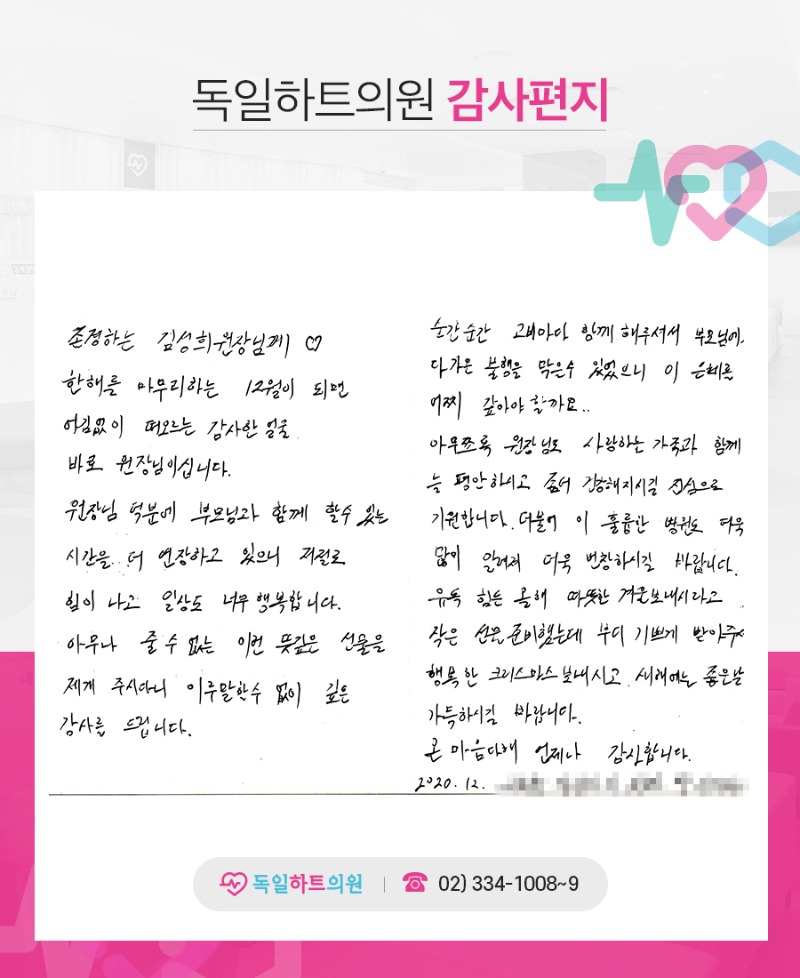 독일하트의원 감사편지
존경하는 김성희원장님께 ♡
한해를 마무리하는 12월이 되면
어김없이 떠오르는 감사한 얼굴
바로 원장님이십니다.
원장님 덕분에 부모님과 함께 할수 있는
시간을 더 연장하고 있으니 저절로
힘이 나고 일상도 너무 행복합니다.
아무나 줄 수 없는 이런 뜻깊은 선물을
제게 주시다니 이루말할수 없이 깊은
감사를 드립니다.
순간순간 고비마다 함께 해주셔서 부모님에게
다가온 불행을 막을수 있었으니 이 은혜를
어찌 갚아야 할까요..
아무쪼록 원장님도 사랑하는 가족과 함께
늘 평안하시고 좀더 건강해지시길 진심으로
기원합니다. 더불어 이 훌륭한 병원도 더욱
많이 알려져 더욱 번창하시길 바랍니다.
유독 힘든 올해 따뜻한 겨울보내시라고
작은 선물 준비했는데 부디 기쁘게 받아주
행복한 크리스마스 보내시고 새해에는 좋은날
가득하시길 바랍니다.
온 마음다해 언제나 감사합니다.
2020. 12.
독일하트의원 02) 334-1008~9